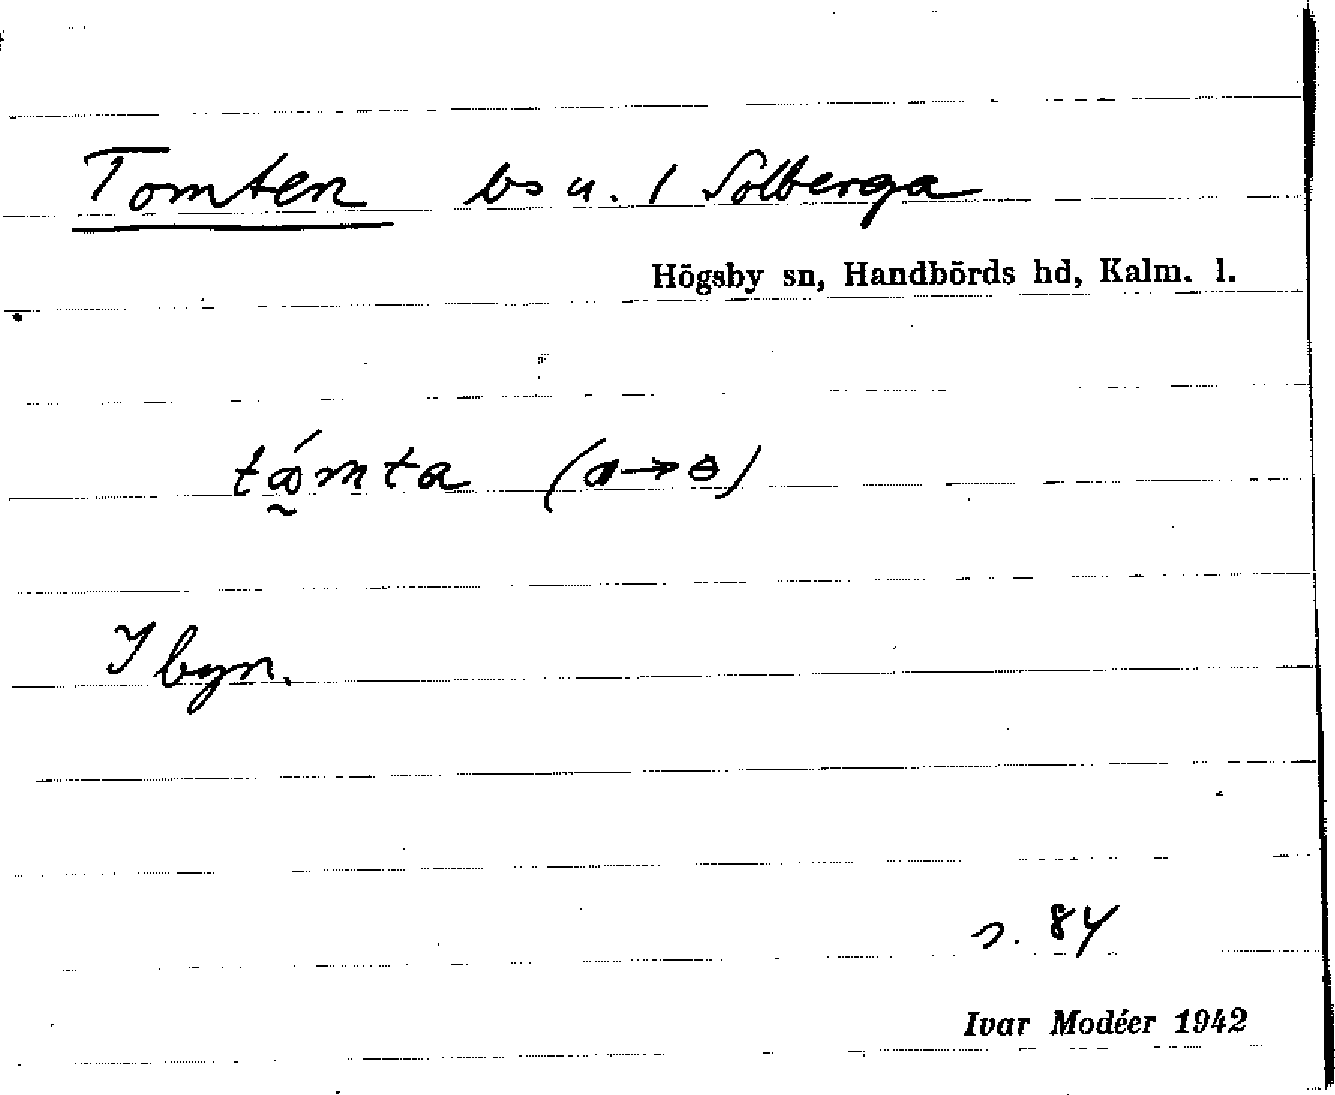 Tomten bs u. 1 Solberga
Högsby sn, Handbörds hd, Kalm. l.
(a→ɵ)
I byn.
s. 84
Ivar Modéer 1942